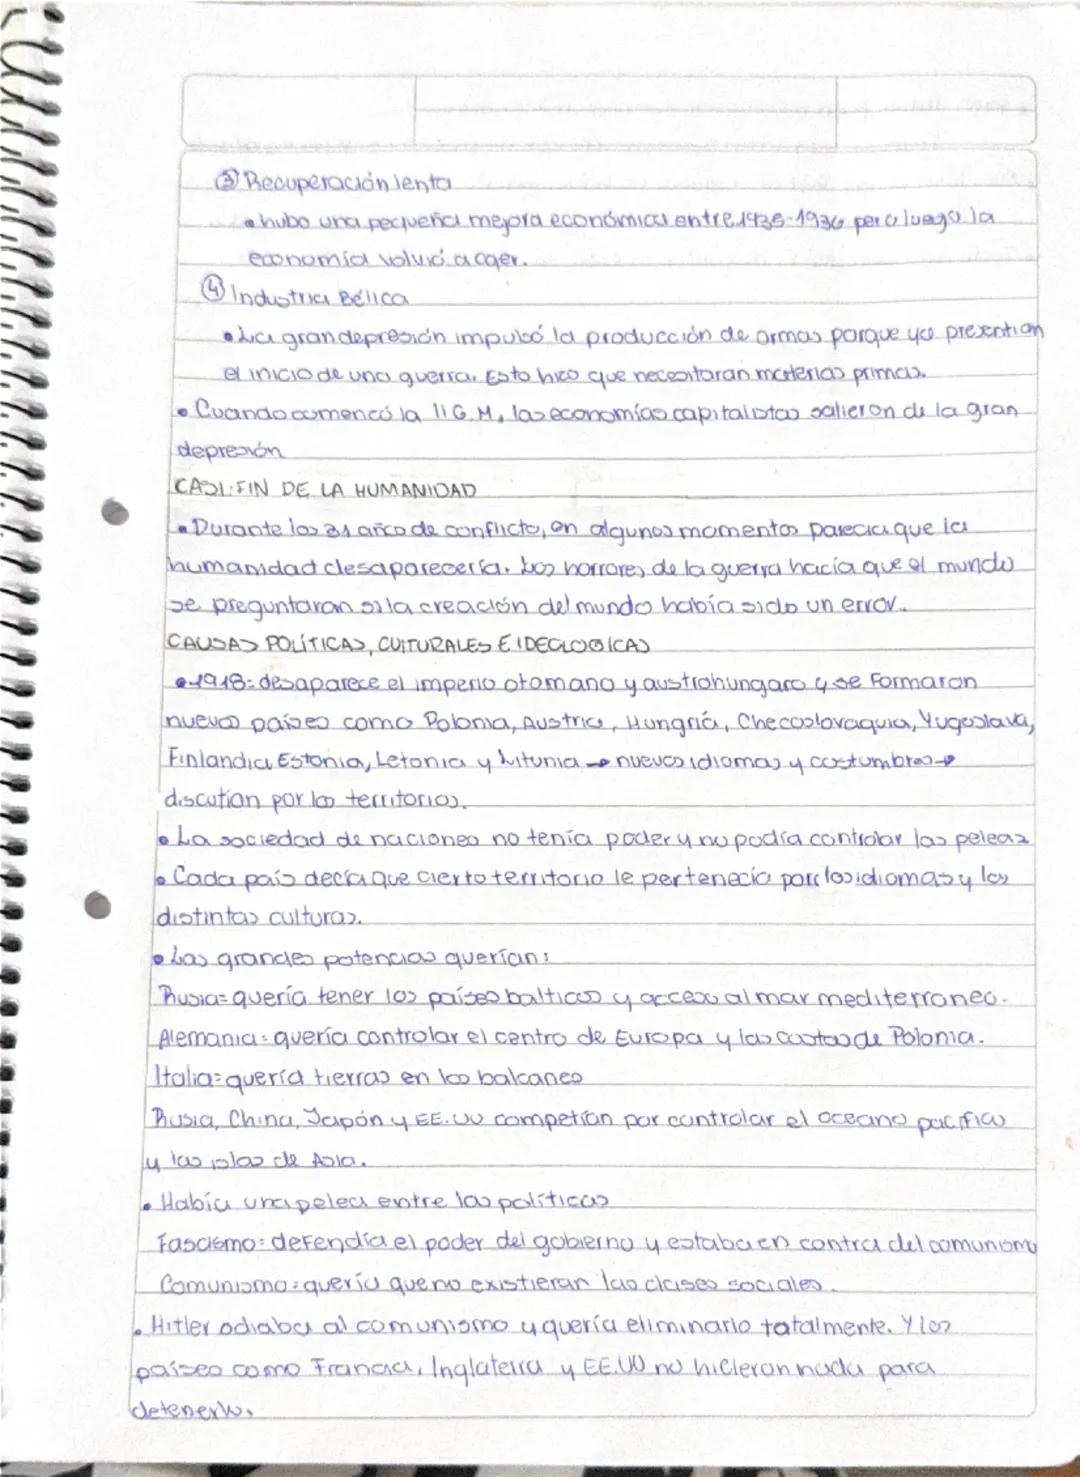 ③ Recuperación lenta
• hubo una pequeña mejora económica entre 1935-1936 pero luego la
economía volvió a caer.
④ Industria Bélica
• La gran depresión impulsó la producción de armas porque ya presentian
el inicio de una guerra. Esto hizo que necesitaran materias primas.
• Cuando comenzó la II G.M, las economías capitalistas salieron de la gran
depresión
CASI FIN DE LA HUMANIDAD
• Durante los 31 años de conflicto, en algunos momentos parecía que la
humanidad desaparecería. Los horrores de la guerra hacía que el mundo
se preguntaran si la creación del mundo había sido un error.
CAUSAS POLÍTICAS, CULTURALES E IDEOLOGICAS
• 1918: desaparece el imperio otomano y austrohungaro y se formaron
nuevos países como Polonia, Austria, Hungría, Checoslovaquia, Yugoslava,
Finlandia Estonia, Letonia y Litunia → nuevos idiomas y costumbres →
discutían por los territorios.
• La sociedad de naciones no tenía poder y no podía controlar las peleas
• Cada país decía que cierto territorio le pertenecía por los idiomas y las
distintas culturas.
• Las grandes potencias querían:
Rusia= quería tener los países balticos y acceso al mar mediterraneo.
Alemania= quería controlar el centro de Europa y las costas de Polonia.
Italia= quería tierras en los balcanes
Rusia, China, Japón y EE.UU competían por controlar el oceano pacifico
y las islas de Asia.
• Había una pelea entre las políticas
Fascismo= defendía el poder del gobierno y estaba en contra del comunismo
Comunismo= quería que no existieran las clases sociales.
• Hitler odiaba al comunismo y quería eliminarlo totalmente. Y los
países como Francia, Inglaterra y EE.UU no hicieron nada para
detenerlo.